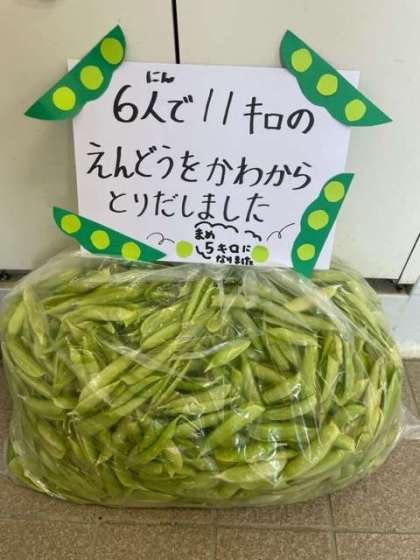 にん
6人で11キロの
えんどうをかわから
とりだしました
まめ
5キロに
なりました